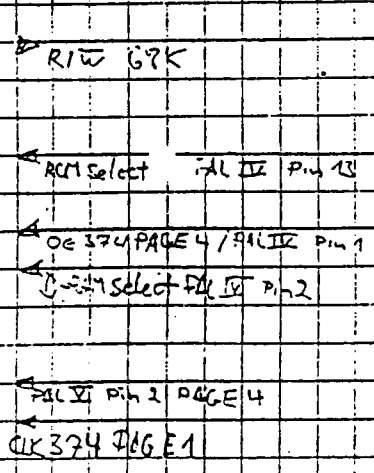 R/W̅ 68K
ROM Select PAL IV Pin 13
OE 374 PAGE 4 / PAL IV Pin 1
D-RAM Select PAL IV Pin 2
PAL VI Pin 2 PAGE 4
CLK 374 PAGE 1